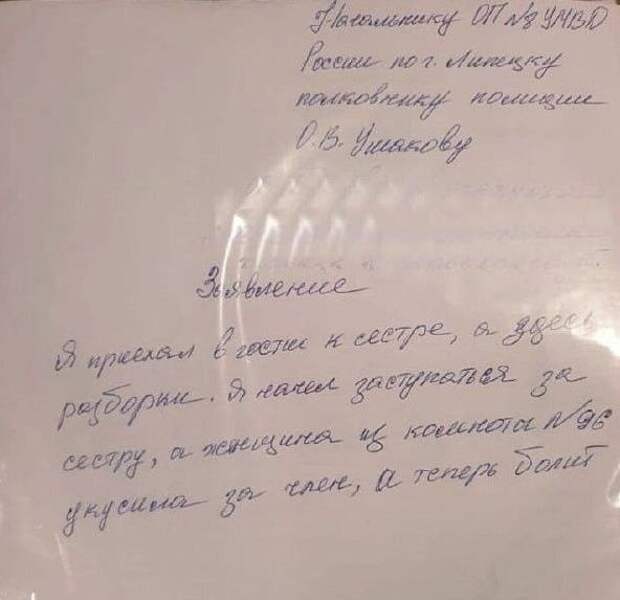 Начальнику ОП №8 УМВД
России по г. Липецку
полковнику полиции
О.В. Ушакову
Заявление
Я приехал в гости к сестре, а здесь
разборки. Я начел заступаться за
сестру, а женщина из комнота №96
укусила за член, а теперь болит